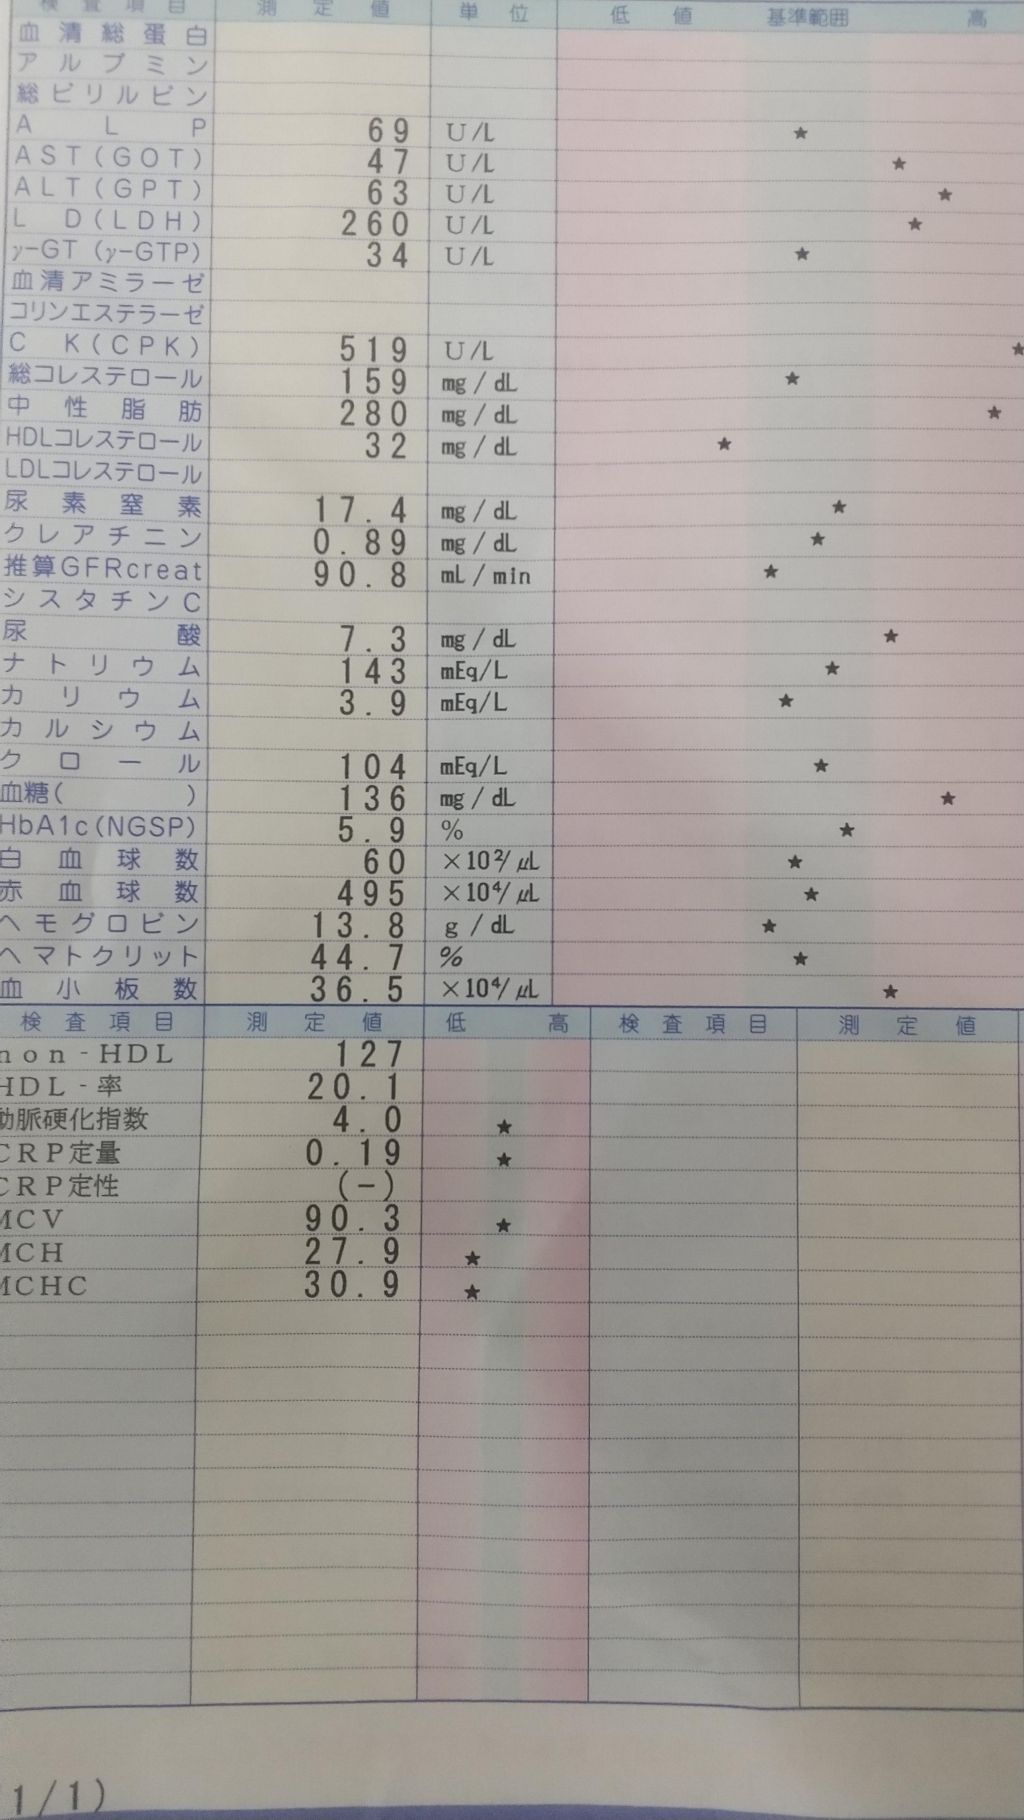 検査項目 測定値 単位 低値 基準範囲 高
血清総蛋白
アルブミン
総ビリルビン
ALP 69 U/L ★
AST(GOT) 47 U/L ★
ALT(GPT) 63 U/L ★
LD(LDH) 260 U/L ★
γ-GT (γ-GTP) 34 U/L ★
血清アミラーゼ
コリンエステラーゼ
CK(CPK) 519 U/L ★
総コレステロール 159 mg/dL ★
中性脂肪 280 mg/dL ★
HDLコレステロール 32 mg/dL ★
LDLコレステロール
尿素窒素 17.4 mg/dL ★
クレアチニン 0.89 mg/dL ★
推算GFRcreat 90.8 mL/min ★
シスタチンC
尿酸 7.3 mg/dL ★
ナトリウム 143 mEq/L ★
カリウム 3.9 mEq/L ★
カルシウム
クロール 104 mEq/L ★
血糖( ) 136 mg/dL ★
HbA1c(NGSP) 5.9 % ★
白血球数 60 ×10²/μL ★
赤血球数 495 ×10⁴/μL ★
ヘモグロビン 13.8 g/dL ★
ヘマトクリット 44.7 % ★
血小板数 36.5 ×10⁴/μL ★
検査項目 測定値 低 高 検査項目 測定値
non-HDL 127
HDL-率 20.1
動脈硬化指数 4.0 ★
CRP定量 0.19 ★
CRP定性 (-)
MCV 90.3 ★
MCH 27.9 ★
MCHC 30.9 ★
1/1)